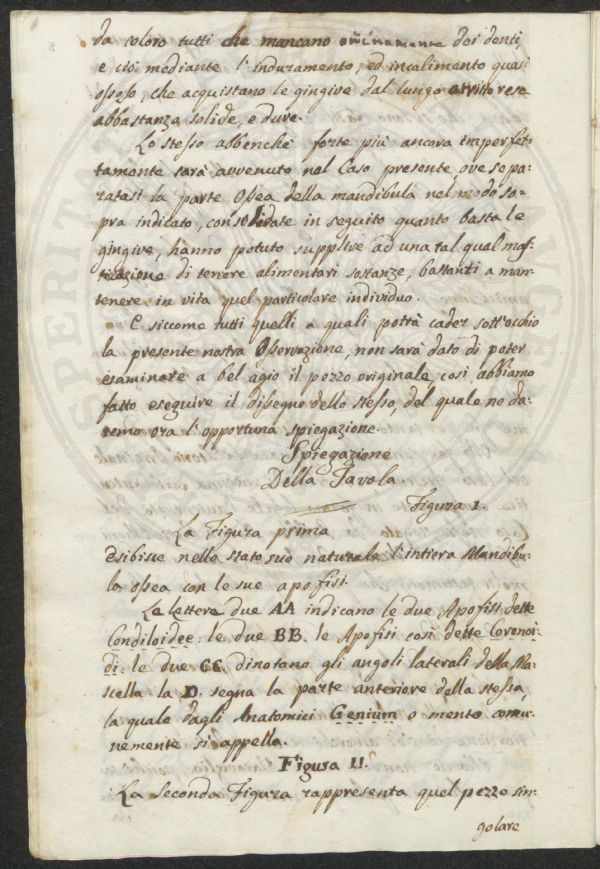 da coloro tutti che mancano oñinamente dei denti,
e ciò mediante l'induramento, ed incalimento quasi
osseso, che acquistano le gingive dal lungo attrito rese
abbastanza solide, e dure.
Lo stesso abbenchè forte più ancora imperfet-
tamente sarà avvenuto nel Caso presente, ove sepa-
ratasi la parte Ossea della mandibula nel modo so-
pra indicato, consolidate in seguito quanto basta le
gingive, hanno potuto supplire ad una tal qual mas-
ticazione di tenere alimentari sostanze, bastanti a man-
tenere in vita quel particolare individuo.
E siccome tutti quelli a quali potrà cader sott'occhio
la presente nostra Osservazione, non sarà dato di poter
esaminare a bel agio il pezzo originale, così abbiamo
fatto eseguire il disegno dello stesso, del quale ne da-
remo ora l'opportuna spiegazione.
Spiegazione
Della Tavola.
Figura I.
La Figura prima
esibisce nello stato suo naturale l'intiera Mandibu-
la ossea con le sue apofisi.
Le lettere due AA indicano le due Apofisi dette
Condiloidee: le due BB. le Apofisi così dette Coronoi-
di: le due CC. dinotano gli angoli laterali della Ma-
scella: la D. segna la parte anteriore della stessa,
la quale dagli Anatomici Genium o mento comu-
nemente si appella.
Figura II.
La Seconda Figura rappresenta quel pezzo sin-
golare